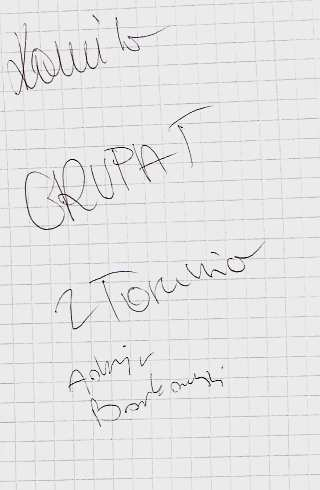 Kamil
GRUPA T
z Torunia
Adrian
Borkowski